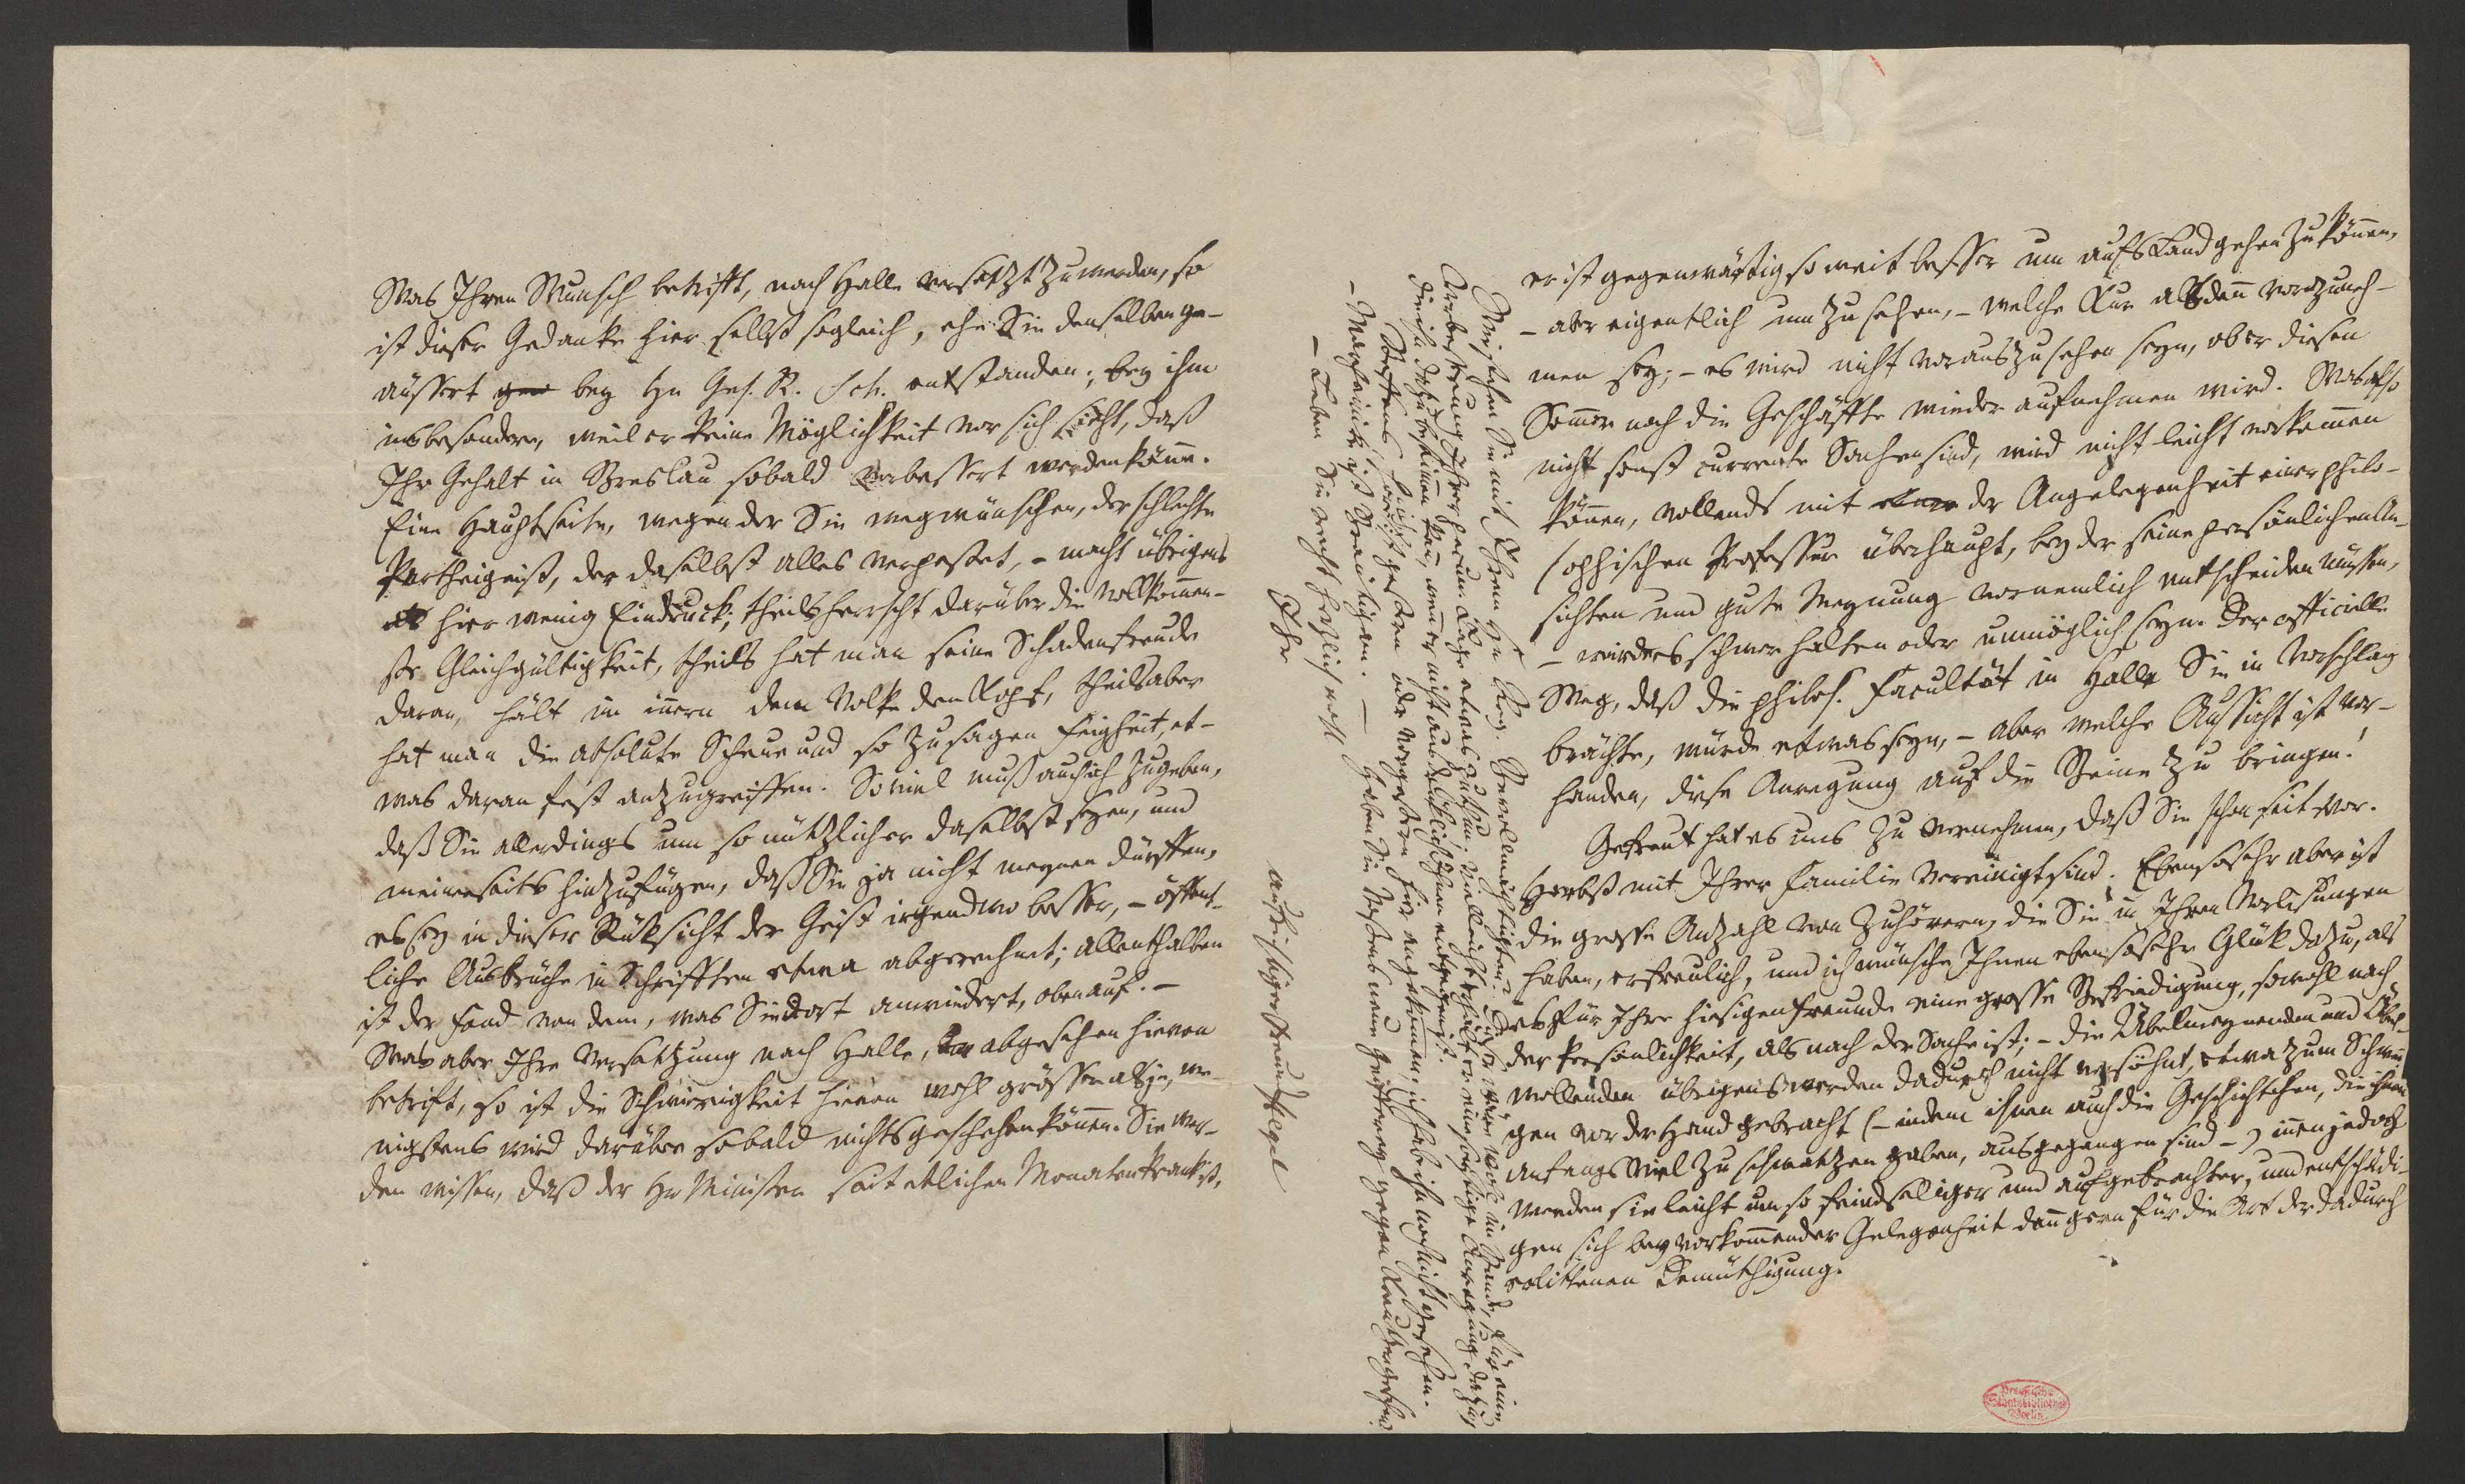 Was Ihren Wunsch betrifft, nach Halle versetzt zu werden, so
ist dieser Gedanke hier selbst sogleich, ehe Sie denselben ge-
äussert gew bey Hn Geh. R. Sch. entstanden; bey ihm
insbesondere, weil er keine Möglichkeit vor sich sieht, daß
Ihr Gehalt in Breslau sobald verbessert werden könne.
Eine Hauptseite, wegen der Sie wegwünschen, der schlechte
Partheigeist, der daselbst alles verpestet, – macht übrigens
hier wenig Eindruck; theils herrscht darüber die vollkommen-
ste Gleichgültigkeit, theils hat man seine Schadenfreude
daran, hält im innern dem Volke den Kopf, theils aber
hat man die absolute Scheue und so zu sagen Feigheit, et-
was daran fest anzugreiffen. So viel muß auch ich zugeben,
daß Sie allerdings um so nützlicher daselbst seyen, und
meinerseits hinzufügen, daß Sie ja nicht meynen dürffen,
es sey in dieser Rüksicht der Geist irgendwo besser, – öffent-
liche Ausbrüche in Schrifften etwa abgerechnet; allenthalben
ist der Fond von dem, was Sie dort anwiedert, obenauf. –
Was aber Ihre Versetzung nach Halle, abgesehen hievon
betrift, so ist die Schwierigkeit hievon wohl grösser als je, we-
nigstens wird darüber sobald nichts geschehen können. Sie wer-
den wissen, daß der Hr Minister seit etlichen Monaten krank ist,
er ist gegenwärtig so weit besser um aufs Land gehen zu können,
– aber eigentlich um zu sehen, – welche Kur alsdann vorzuneh-
men sey; – es wird nicht vorauszusehen seyn, ob er diesen
Sommer noch die Geschäffte wieder aufnehmen wird. Was also
nicht sonst currente Sachen sind, wird nicht leicht vorkommen
können, vollends mit der Angelegenheit einer philo-
sophischen Professur überhaupt, bey der seine persönlichen An-
sichten und gute Meynung vornemlich entscheiden müssen,
– würde es schwer halten oder unmöglich seyn. Der officielle
Weg, daß die philos. Facultät in Halle Sie in Vorschlag
brächte, würde etwas seyn, – aber welche Aussicht ist vor-
handen, diese Anregung auf die Beine zu bringen!
Gefreut hat es uns zu vernehmen, daß Sie schon seit vor.
Herbst mit Ihrer Familie vereinigt sind. Ebensosehr aber ist
die grosse Anzahl von Zuhörern, die Sie in Ihren Vorlesungen
haben, erfreulich, und ich wünsche Ihnen ebensosehr Glük dazu, als
es für Ihre hiesigen Freunde eine grosse Befriedigung, sowohl nach
der Persönlichkeit, als nach der Sache ist; – die Übelmeynenden und Übel-
wollenden übrigens werden dadurch nicht versöhnt, etwa zum Schwei-
gen vor der Hand gebracht (– indem ihnen auch die Geschichtchen, die ihnen
anfangs viel zu schwatzen gaben, ausgegangen sind –) innen jedoch
werden sie leicht um so feindseliger und aufgebrachter, und entschädi-
gen sich bey vorkommender Gelegenheit dann gern für die Art der dadurch
erlittenen Demüthigung.
Weisen Sie mit Ihrem Hn Reg. Bevollmächtigten? Dieser wäre wohl im Stande, für eine
Verbesserung Ihrer herum Lage etwas zu thun; vielleicht eine sonstige Anregung dazu,
die ihn dazu bestimmen kan, wenn er nicht aus Ihnen entgegen ist.
Steffens, heißt es, ist gestern oder vorgestern hier angekommen; ich habe ihn noch nicht gesehen.
– Marheineke ist . – Haben Sie
– Leben Sie recht herzlich wohl
Ihr
aufrichtiger Freund Hegel
Preußische
Staatsbibliothek
Berlin